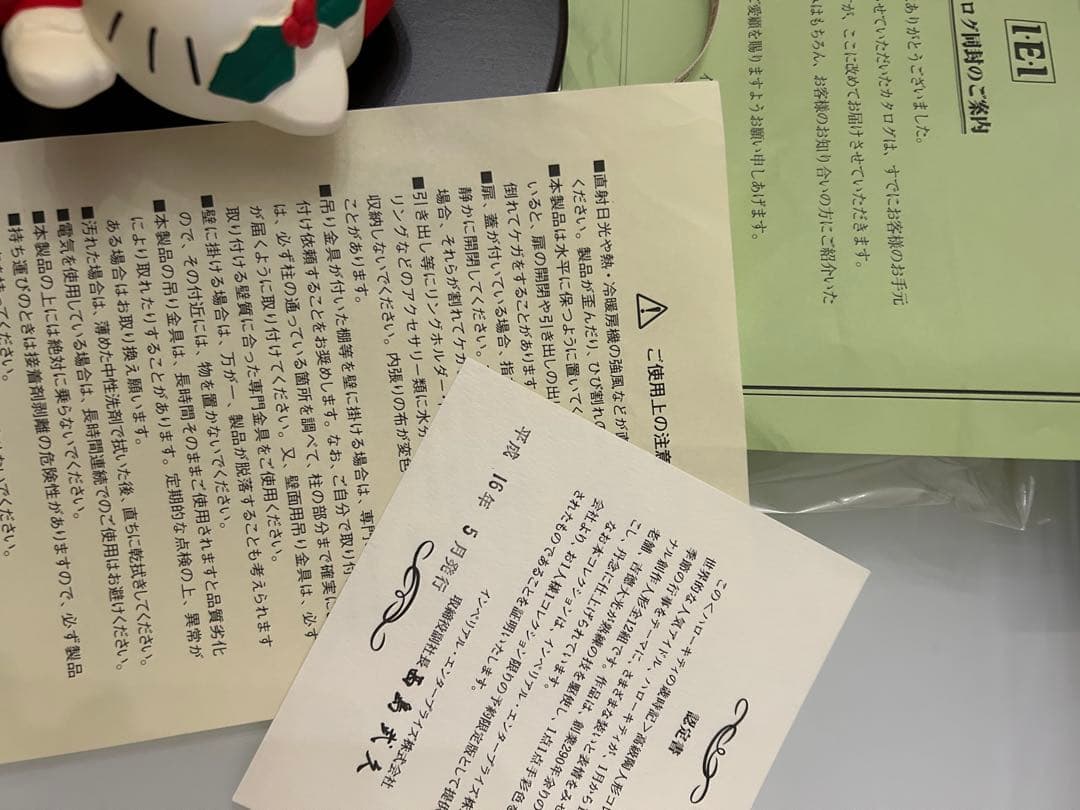 I・E・I
タログ同封のご案内
ありがとうございました。
せていただいたカタログは、すでにお客様のお手元
が、ここに改めてお届けさせていただきます。
はもちろん、お客様のお知り合いの方にご紹介いた
ご愛顧を賜りますようお願い申しあげます。
ご使用上の注意
■直射日光や熱・冷暖房機の強風などが直
ください。製品が歪んだり、ひび割れの
■本製品は水平に保つように置いてく
いると、扉の開閉や引き出しの出し
倒れてケガをすることがあります
■扉、蓋が付いている場合、指
静かに開閉してください。
場合、それらが割れてケガ
■引き出し等にリングホルダー
リングなどのアクセサリー類に水分
収納しないでください。内張りの布が変色
ことがあります。
■吊り金具が付いた棚等を壁に掛ける場合は、専門
付け依頼することをお奨めします。なお、ご自分で取り付
は、必ず柱の通っている箇所を調べて、柱の部分まで確実に
が届くように取り付けてください。又、壁面用吊り金具は、必ず
取り付ける壁質に合った専門金具をご使用ください。
■壁に掛ける場合は、万が一、製品が脱落することも考えられます
ので、その付近には、物を置かないでください。
■本製品の吊り金具は、長時間そのままご使用されますと品質劣化
により取れたりすることがあります。定期的な点検の上、異常が
ある場合はお取り換え願います。
■汚れた場合は、薄めた中性洗剤で拭いた後、直ちに乾拭きしてください。
■電気を使用している場合は、長時間連続でのご使用はお避けください。
■本製品の上には絶対に乗らないでください。
■持ち運びのときは接着剤剥離の危険性がありますので、必ず製品
を持ってください。
ないでください。
認定書
このくハローキティの歳時記>高級陶人形コ
世界的な人気アイドル、ハローキティが、1月から
季節の行事をテーマに、さまざまな装いと表情をみせ
ナル創作人形全12組です。作品は、創業290年余りの
老舗、吉徳大光が熟練の技を駆使し、1点1点手彩色を
こし、丹念に仕上げられています。
なお本コレクションは、インペリアル・エンタープライズ株
会社より、お1人様1コレクション限りの予約限定版として提供
されたものであることを証明いたします。
平成 16年 5月発行
インペリアル・エンタープライズ株式会社
取締役副社長